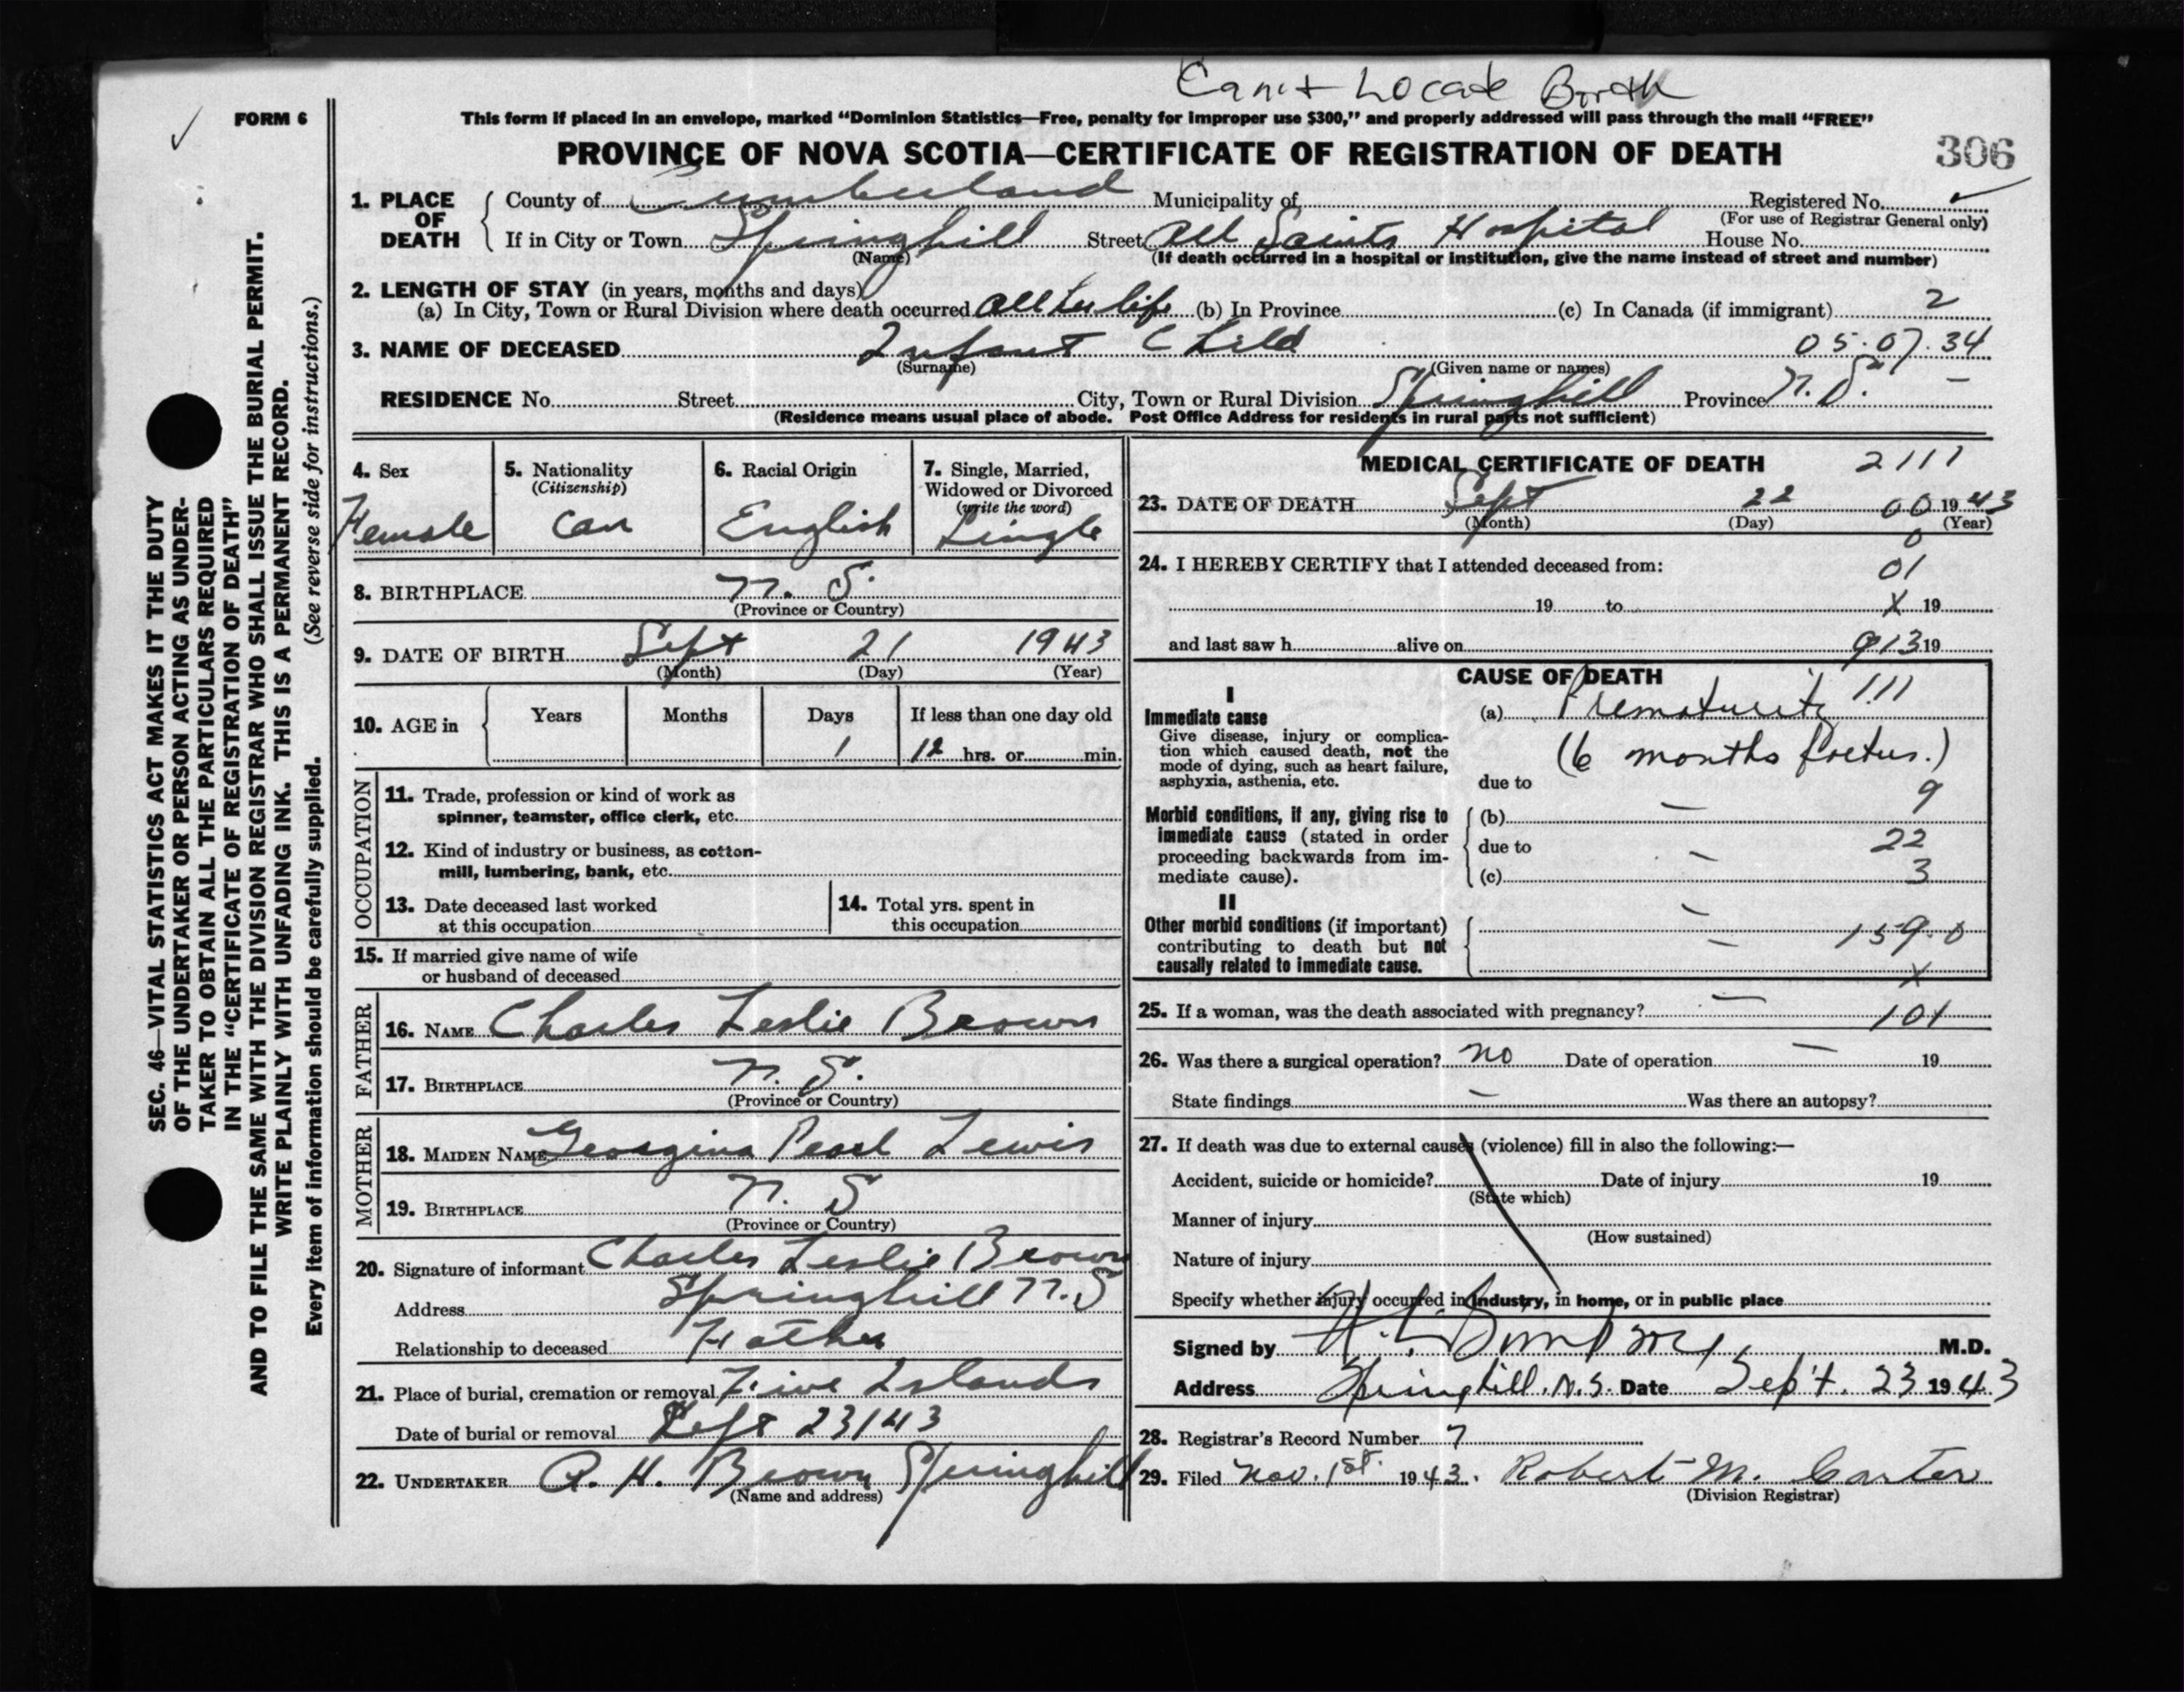 Can't Locate Birth
✓
FORM 6
This form if placed in an envelope, marked "Dominion Statistics—Free, penalty for improper use $300," and properly addressed will pass through the mail "FREE"
PROVINCE OF NOVA SCOTIA—CERTIFICATE OF REGISTRATION OF DEATH
306
1. PLACE OF DEATH
County of Cumberland Municipality of Registered No. ✓
(For use of Registrar General only)
If in City or Town Springhill Street All Saints Hospital House No.
(Name) (If death occurred in a hospital or institution, give the name instead of street and number)
2. LENGTH OF STAY (in years, months and days)
(a) In City, Town or Rural Division where death occurred All her life (b) In Province (c) In Canada (if immigrant) 2
3. NAME OF DECEASED Infant Child 05.07.34
(Surname) (Given name or names)
RESIDENCE No. Street City, Town or Rural Division Springhill Province N.S. —
(Residence means usual place of abode. Post Office Address for residents in rural parts not sufficient)
4. Sex
Female
5. Nationality
(Citizenship)
Can
6. Racial Origin
English
7. Single, Married, Widowed or Divorced
(write the word)
Single
8. BIRTHPLACE N. S.
(Province or Country)
9. DATE OF BIRTH Sept 21 1943
(Month) (Day) (Year)
10. AGE in
Years Months Days If less than one day old
1 12 hrs. or min.
OCCUPATION
11. Trade, profession or kind of work as
spinner, teamster, office clerk, etc.
12. Kind of industry or business, as cotton-
mill, lumbering, bank, etc.
13. Date deceased last worked
at this occupation
14. Total yrs. spent in
this occupation
15. If married give name of wife
or husband of deceased
FATHER
16. NAME Charles Leslie Brown
17. BIRTHPLACE N. S.
(Province or Country)
MOTHER
18. MAIDEN NAME Georgina Pearl Lewis
19. BIRTHPLACE N. S
(Province or Country)
20. Signature of informant Charles Leslie Brown
Address Springhill N.S
Relationship to deceased Father
21. Place of burial, cremation or removal Five Islands
Date of burial or removal Sept 23/43
22. UNDERTAKER A. H. Brown Springhill
(Name and address)
MEDICAL CERTIFICATE OF DEATH 2111
23. DATE OF DEATH Sept 22 00 1943
(Month) (Day) (Year)
0
24. I HEREBY CERTIFY that I attended deceased from: 01
19 to X 19
and last saw h alive on 913 19
CAUSE OF DEATH
I
Immediate cause
Give disease, injury or complica-
tion which caused death, not the
mode of dying, such as heart failure,
asphyxia, asthenia, etc.
(a) Prematurity 111
(6 months foetus.)
due to
9
Morbid conditions, if any, giving rise to
immediate cause (stated in order
proceeding backwards from im-
mediate cause).
(b) —
due to 22
(c) — 3
II
Other morbid conditions (if important)
contributing to death but not
causally related to immediate cause.
— 159.0
— X
25. If a woman, was the death associated with pregnancy? — 101
26. Was there a surgical operation? no Date of operation — 19
State findings — Was there an autopsy?
27. If death was due to external causes (violence) fill in also the following:—
Accident, suicide or homicide? Date of injury 19
(State which)
Manner of injury
(How sustained)
Nature of injury
Specify whether injury occurred in industry, in home, or in public place
Signed by M.D.
Address Springhill. N.S. Date Sep't. 23 1943
28. Registrar's Record Number 7
29. Filed Nov. 1st. 1943. Robert M. Carter
(Division Registrar)
SEC. 46—VITAL STATISTICS ACT MAKES IT THE DUTY
OF THE UNDERTAKER OR PERSON ACTING AS UNDER-
TAKER TO OBTAIN ALL THE PARTICULARS REQUIRED
IN THE "CERTIFICATE OF REGISTRATION OF DEATH"
AND TO FILE THE SAME WITH THE DIVISION REGISTRAR WHO SHALL ISSUE THE BURIAL PERMIT.
WRITE PLAINLY WITH UNFADING INK. THIS IS A PERMANENT RECORD.
Every item of information should be carefully supplied. (See reverse side for instructions.)